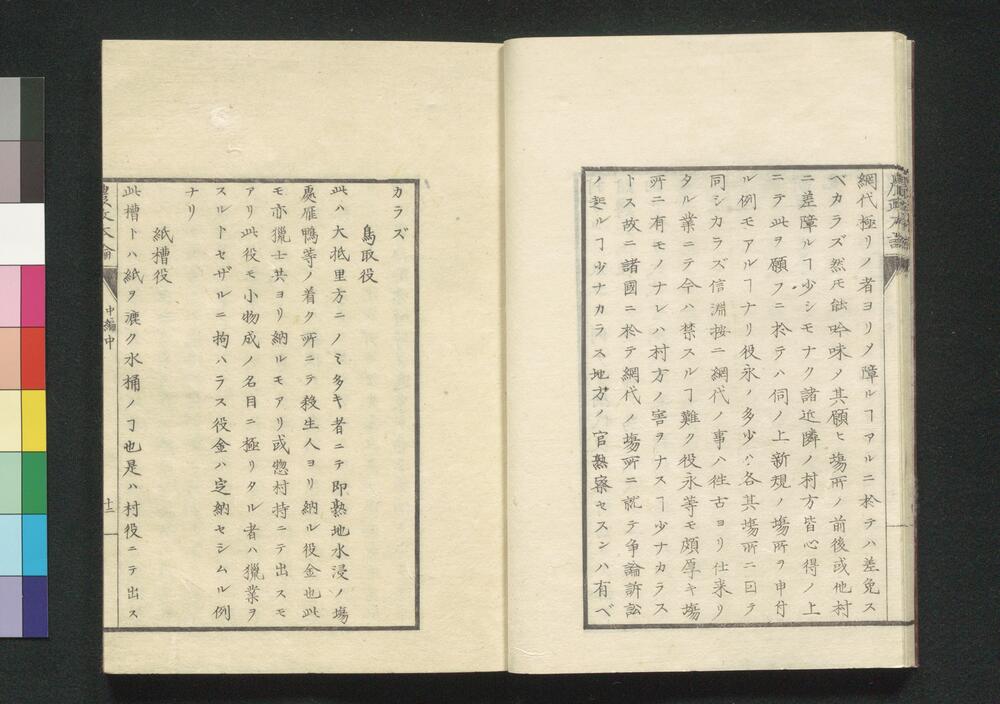 網代極リノ者ヨリメ障ルヿアルニ於テハ差免ス
ベカラズ然𪜈能吟味メ其願ヒ塲所ノ前後或他村
ニ差障ルヿ少シモナク諸近隣ノ村方皆心得ノ上
ニテ此ヲ願フニ於テハ伺ノ上新規ノ塲所ヲ申付
ル例モアルヿナリ役永ノ多少ハ各其塲所ニ因テ
同シカラズ信淵按ニ網代ノ事ハ徃古ヨリ仕来リ
タル業ニテ今ハ禁スルヿ難ク役永等モ頗厚キ塲
所ニ有モノナレハ村方ノ害ヲナスヿ少ナカラス
トス故ニ諸國ニ於テ網代ノ塲所ニ就テ争論訴訟
ノ起ルヿ少ナカラス地方ノ官熟察セスンハ有ベ
カラズ
鳥取役
此ハ大抵里方ニノミ多キ者ニテ即熟地水浸ノ塲
處雁鴨等ノ着ク所ニテ殺生人ヨリ納ル役金也此
モ亦獵士共ヨリ納ルモアリ或惣村持ニテ出スモ
アリ此役モ小物成ノ名目ニ極リタル者ハ獵業ヲ
スルトセザルニ拘ハラス役金ハ定納セシムル例
ナリ
紙槽役
此槽トハ紙ヲ漉ク水桶ノヿ也是ハ村役ニテ出ス
農政本論
中編中
十三